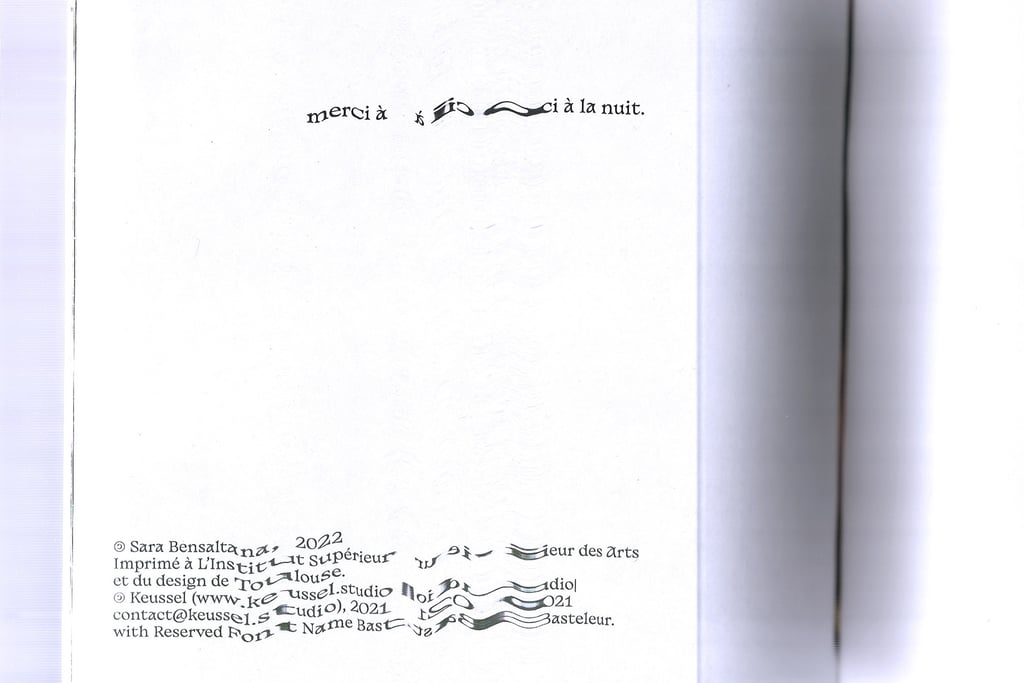 merci à ci à la nuit.
© Sara Bensaltana, 2022
Imprimé à L'Institut Supérieur ieur des Arts
et du design de Toulouse.
© Keussel (www.keussel.studio dio|
contact@keussel.studio), 2021 021
with Reserved Font Name Bast Basteleur.